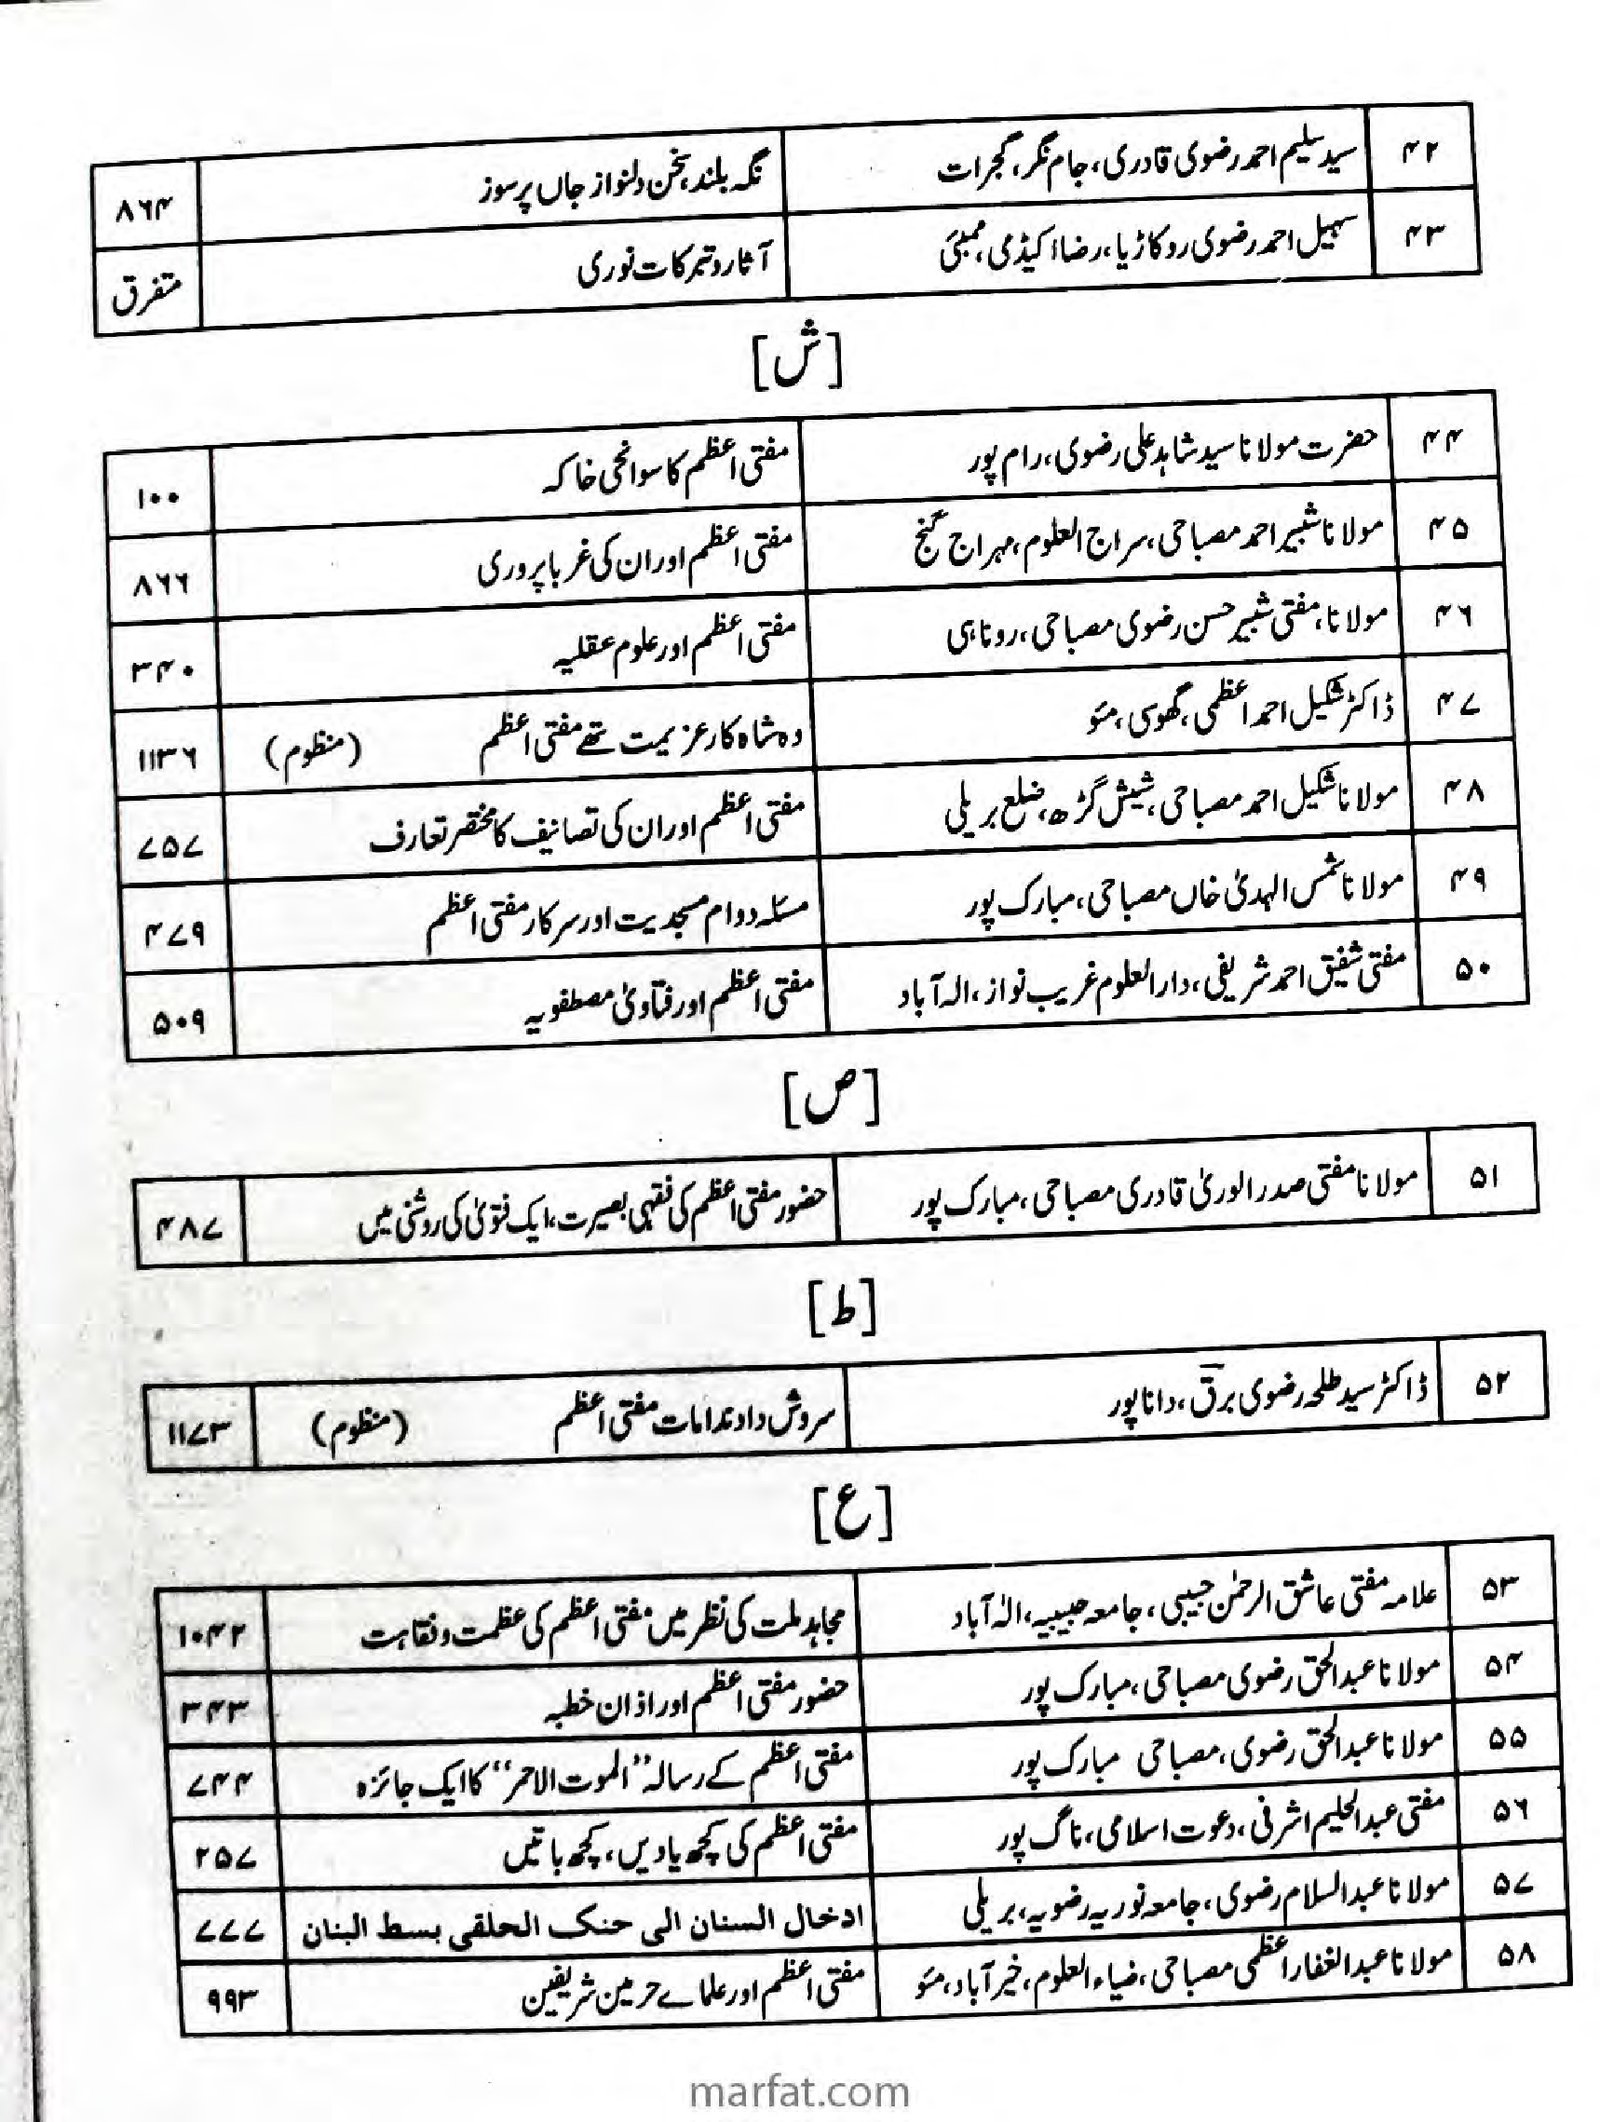 ۴۲ سید سلیم احمد رضوی قادری، جام نگر، گجرات نگہ بلند، سخن دلنواز جاں پر سوز ۸۶۴
۴۳ سہیل احمد رضوی روکاڑیا، رضا اکیڈمی، ممبئی آثار و تبرکات نوری متفرق
[ش]
۴۴ حضرت مولانا سید شاہد علی رضوی، رام پور مفتی اعظم کا سوانحی خاکہ ۱۰۰
۴۵ مولانا شبیر احمد مصباحی، سراج العلوم، مہراج گنج مفتی اعظم اور ان کی غربا پروری ۸۶۶
۴۶ مولانا، مفتی شبیر حسن رضوی مصباحی، روناہی مفتی اعظم اور علوم عقلیہ ۳۴۰
۴۷ ڈاکٹر شکیل احمد اعظمی، گھوسی، مئو وہ شاہ کار عزیمت تھے مفتی اعظم (منظوم) ۱۱۳۶
۴۸ مولانا شکیل احمد مصباحی، شیش گڑھ، ضلع بریلی مفتی اعظم اور ان کی تصانیف کا مختصر تعارف ۷۵۷
۴۹ مولانا شمس الہدیٰ خاں مصباحی، مبارک پور مسئلہ دوام مسجدیت اور سرکار مفتی اعظم ۴۷۹
۵۰ مفتی شفیق احمد شریفی، دارالعلوم غریب نواز، الہ آباد مفتی اعظم اور فتاویٰ مصطفویہ ۵۰۹
[ص]
۵۱ مولانا مفتی صدر الوریٰ قادری مصباحی، مبارک پور حضور مفتی اعظم کی فقہی بصیرت، ایک فتویٰ کی روشنی میں ۴۸۷
[ط]
۵۲ ڈاکٹر سید طلحہ رضوی برق، دانا پور سروش داد ندامات مفتی اعظم (منظوم) ۱۱۷۳
[ع]
۵۳ علامہ مفتی عاشق الرحمٰن حبیبی، جامعہ حبیبیہ، الہٰ آباد مجاہد ملت کی نظر میں مفتی اعظم کی عظمت و نقاہت ۱۰۴۲
۵۴ مولانا عبدالحق رضوی مصباحی، مبارک پور حضور مفتی اعظم اور اذان خطبہ ۳۴۳
۵۵ مولانا عبدالحق رضوی، مصباحی مبارک پور مفتی اعظم کے رسالہ ”الموت الاحمر“ کا ایک جائزہ ۷۴۴
۵۶ مفتی عبدالحلیم اشرفی، دعوت اسلامی، ناگ پور مفتی اعظم کی کچھ یادیں، کچھ باتیں ۲۵۷
۵۷ مولانا عبدالسلام رضوی، جامعہ نوریہ رضویہ، بریلی ادخال السنان الی حنک الحلقی بسط البنان ۷۷۷
۵۸ مولانا عبدالغفار اعظمی مصباحی، ضیاء العلوم، خیر آباد، مئو مفتی اعظم اور علماے حرمین شریفین ۹۹۳
marfat.com